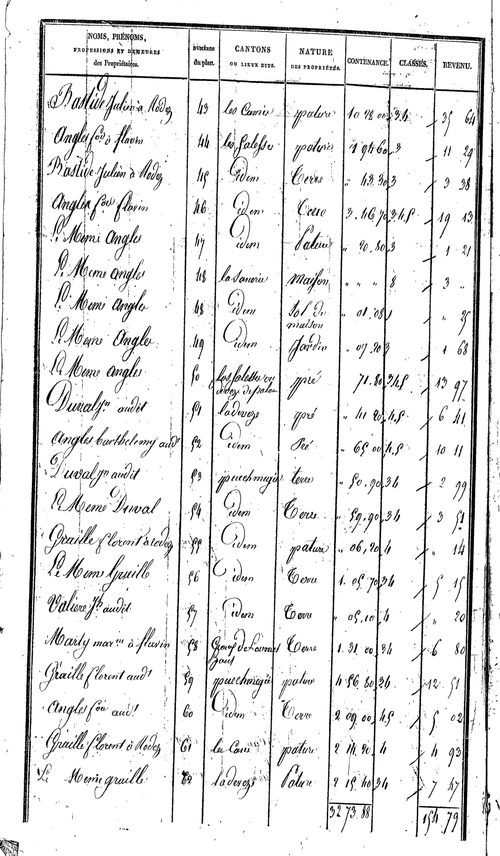 NOMS, PRÉNOMS, PROFESSIONS ET DEMEURES des Propriétaires. NUMÉROS du plan. CANTONS OU LIEUX DITS. NATURE DES PROPRIÉTÉS. CONTENANCE. CLASSES. REVENU.
Bastide Julien à Rodez 43 les Caves pature 10 28 00 34 35 64
Angles fois à flavin 44 les pature 1 94 60 3 11 29
Bastide Julien à Rodez 45 idem Terre " 43 30 3 3 38
Angles fois flavin 46 idem Terre 3 46 70 345 19 13
Le Meme Angles 47 idem Pature " 20 80 3 1 21
Le Meme Angles 48 maison " " " 8 3 "
Le Meme Angles 48 idem Sol de maison " 01 08 1 " 25
Le Meme Angles 49 idem Jardin " 07 20 3 1 68
Le Meme Angles 50 pré 71 80 345 13 97
Duval jn audit 51 ladevèze pré " 41 20 45 6 41
Angles barthelemy audt 52 idem Pré " 65 00 45 10 11
Duval jn audit 53 puechmegie terre " 50 90 34 2 99
Le Meme Duval 54 idem Terre " 59 90 34 3 51
Graille florent à rodez 55 idem pature " 06 20 4 " 14
Le Meme Graille 56 idem Terre 1 05 70 34 5 15
Valiere audit 57 idem Terre " 05 10 4 " 20
Marty à flavin 58 Terre 1 31 00 34 6 80
Graille florent audt 59 puechmegie pature 4 56 80 34 12 51
Angles fois audt 60 idem Terre 2 09 00 45 5 02
Graille florent à Rodez 61 pature 2 14 20 4 4 93
Le Meme graille 62 ladevèze Pature 2 15 40 34 7 47
32 73 88 154 79